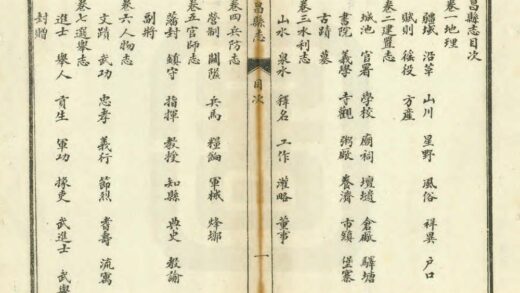 昌縣志目次
卷一地理
疆域 沿革 山川 星野 風俗 祥異 戶口
賦則 徭役 方產
卷二建置志
城池 官署 學校 廟祠 壇壝 倉廠 驛塘
書院 義學 寺觀 粥廠 養濟 市鎮 堡寨
古蹟 墓
卷三水利志
山水 泉水 釋名 工作 灌略 董事
昌縣志
目次
一
卷四兵防志
營制 關隘 兵馬 糧餉 軍械 烽堠
卷五官師志
藩封 鎮守 指揮 教授 知縣 典史 教諭
副將
卷六人物志
文蹟 武功 忠孝 義行 節烈 耆壽 流寓
卷七選舉志
進士 舉人 貢生 軍功 掾吏 武進士 武舉
封贈